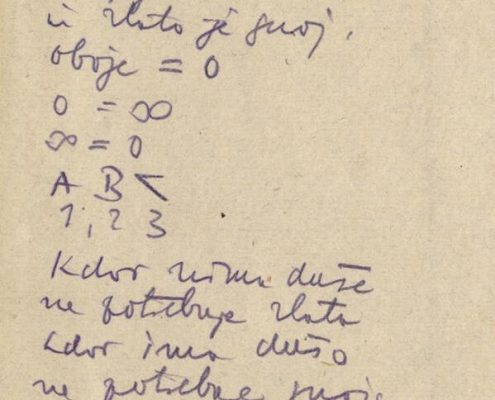 in zlato je gnoj.
oboje = 0
0 = ∞
∞ = 0
A B <
1, 2 3
Kdor nima duše
ne potrebuje zlata
kdor ima dušo
ne potrebuje gnoja